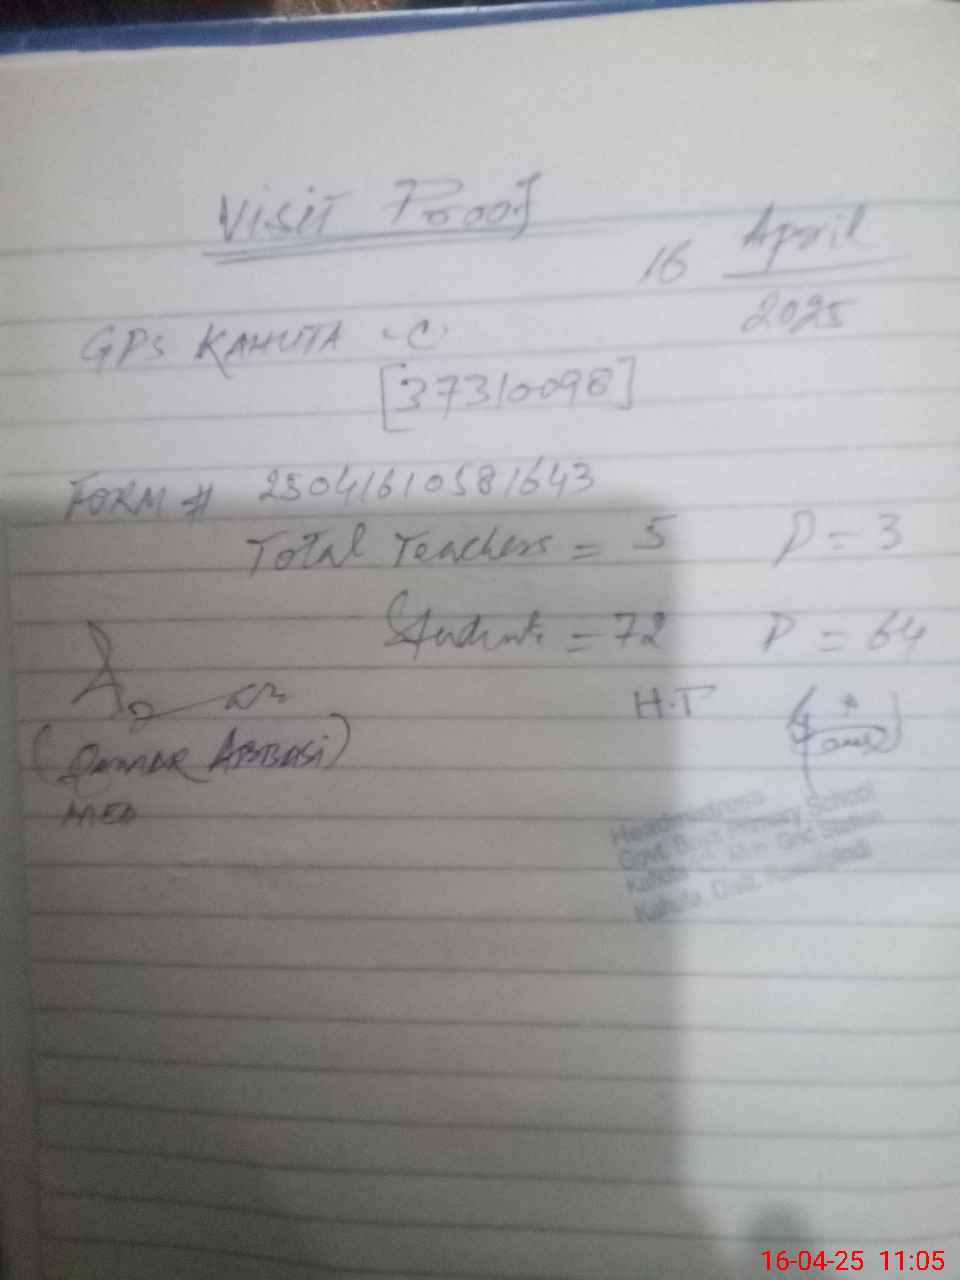 Visit Proof
16 April
2025
GPS KAHUTA -C
[37310098]
FORM # 25041610581643
Total Teachers = 5 P = 3
Students = 72 P = 64
H.T
(Qamar ABBASi)
MEA
Headmistress
Govt. Boys Primary School
Grid Station
Kahuta Distt. Rawalpindi
16-04-25 11:05